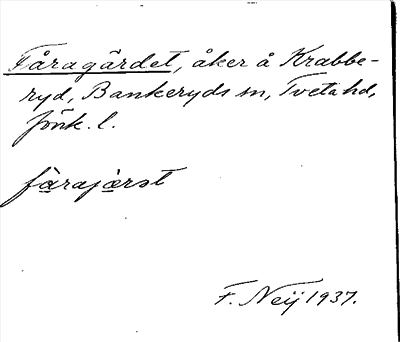 Fåragärdet, åker å Krabbe-
ryd, Bankeryds sn, Tveta hd,
Jönk. l.
fåra jærst
F. Neij 1937.